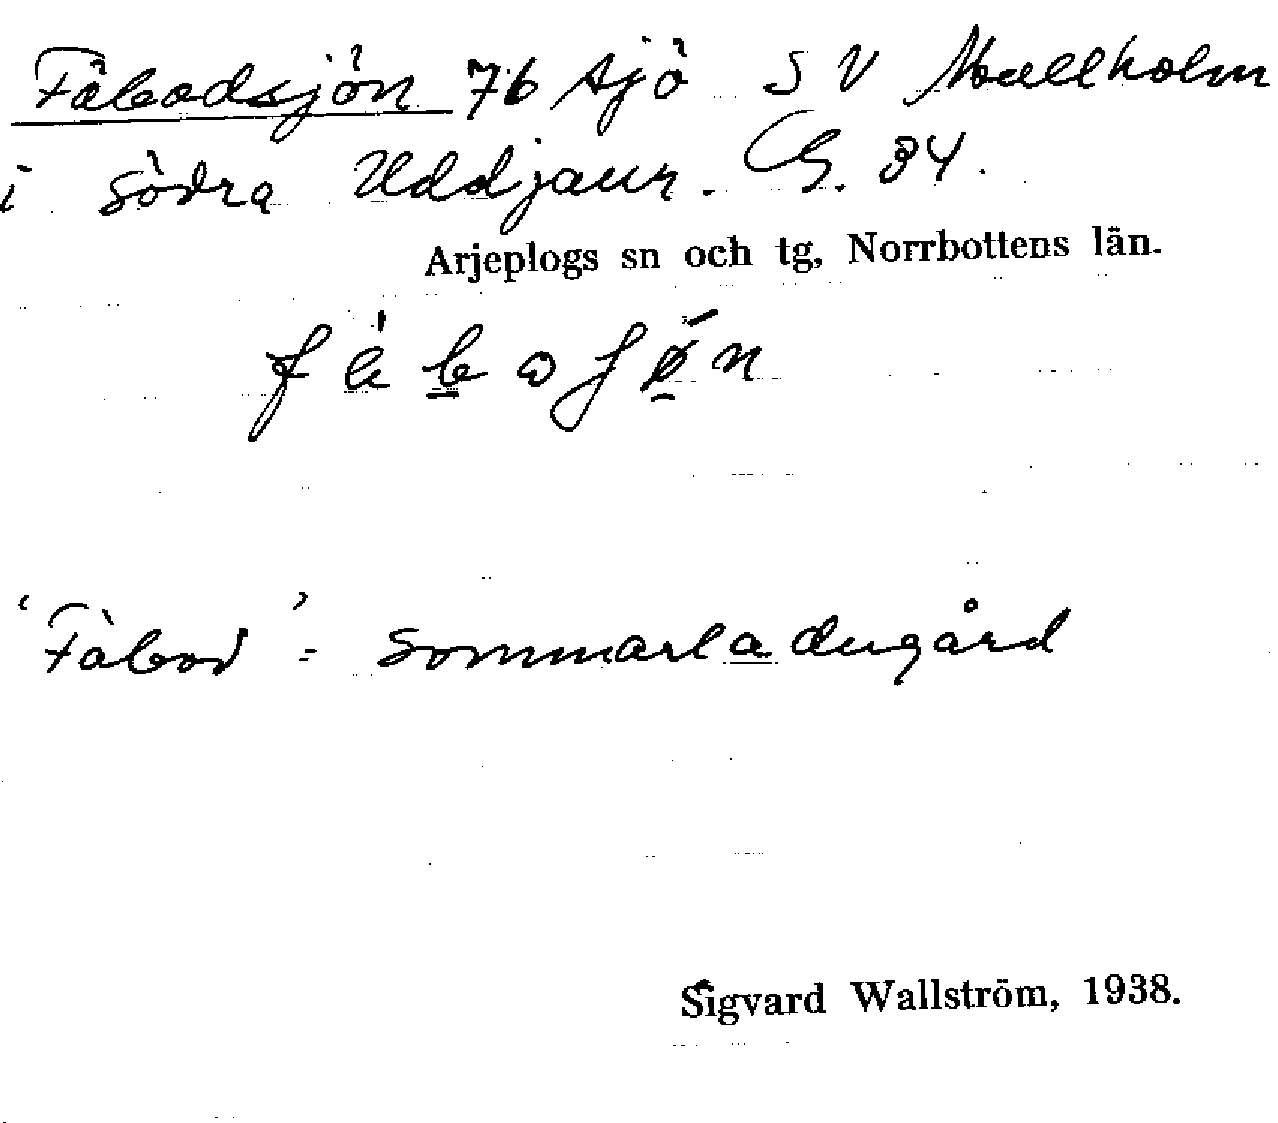 Fäbodsjön 76 sjö SV Mullholm
i södra Uddjaur. G. 34.
Arjeplogs sn och tg, Norrbottens län.
'Fäbod' = sommarladugård
Sigvard Wallström, 1938.